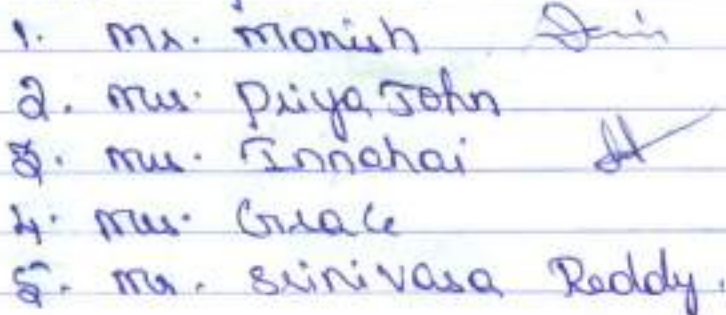 1. Mr. Monish
2. Mrs. Priya John
3. Mrs. Innahai
4. Mrs. Grace
5. Mr. Srinivasa Reddy.